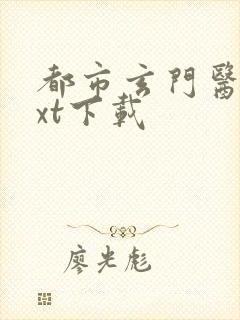 都市玄門醫
xt下載
廖光彪